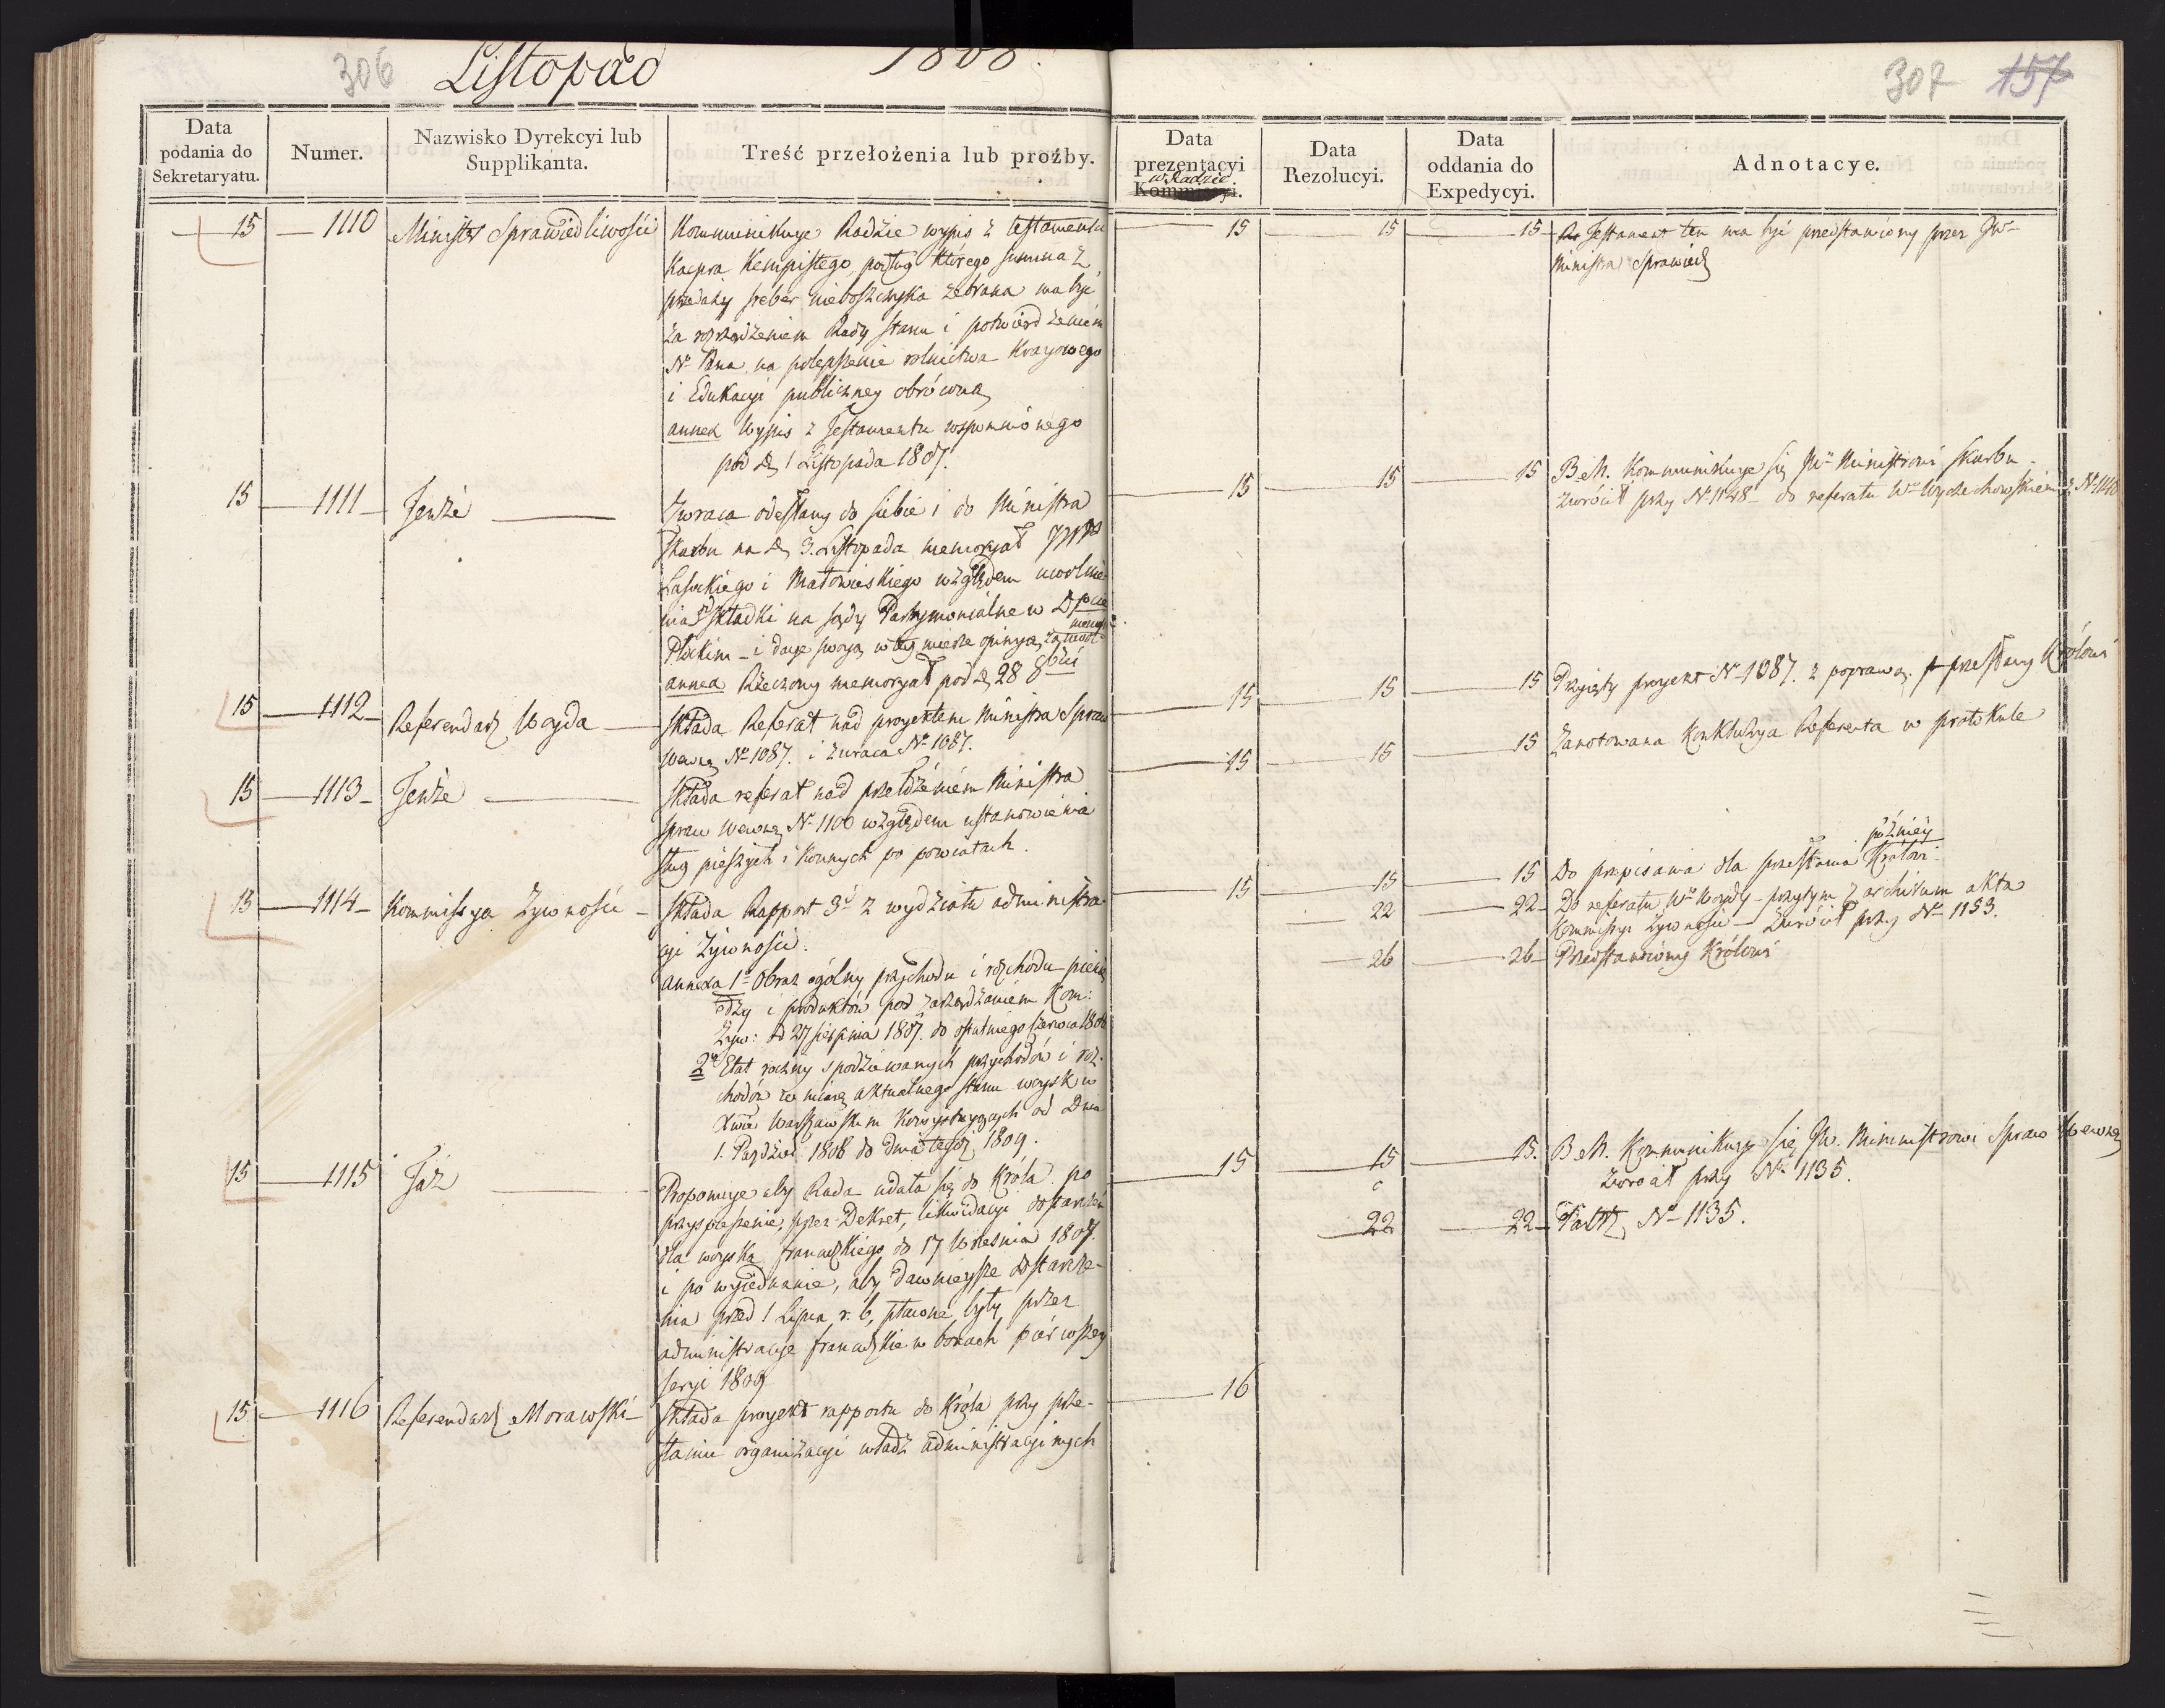 306 Listopad 1808.
307 157
Data podania do Sekretaryatu.
Numer.
Nazwisko Dyrekcyi lub Supplikanta.
Treść przełożenia lub proźby.
Data prezentacyi w Radzie Kommissyi.
Data Rezolucyi.
Data oddania do Expedycyi.
Adnotacye.
15 — 1110 Ministr Sprawiedliwości
Kommunikuje Radzie wypis z testamentu
Kacpra Kempistego, podług którego summa z
przedaży sreber nieboszczyka zebrana ma być
za rozrządzeniem Rady Stanu i potwierdzeniem
N. Pana na polepszenie rolnictwa Krajowego
i Edukacyi publiczney obrócona
annex Wypis z Testamentu wspomnionego
pod d. 1 Listopada 1807.
15 15 15 Testament ten ma być przedstawiony przez JW
Ministra Sprawied
15 — 1111 — Tenże —
Zwraca odesłany do siebie i do Ministra
Skarbu na d. 3. Listopada memoryał
Lasockiego i Małowieskiego względem uwolnie-
nia składki na sądy Patrymonialne w
Płockim — i daje swoją w tey mierze opinyą
annex Rzeczony memoryał pod d. 28 8bris
15 15 15 B. M. Kommunikuje się JW Ministrowi Skarbu —
zwrócił przy N. 1148 — do referatu W Wyczechowskiemu z N. 1148
15 — 1112 — Referendarz Woyda —
Składa Referat nad projektem Ministra Spraw
Wewnę N. 1087. i zwraca N. 1087.
15 15 15 Przyjęty projekt N. 1087. z poprawą przesłany Królowi
15 — 1113 — Tenże —
Składa referat nad przełożeniem Ministra
Spraw Wewnę N. 1100 względem ustanowienia
sług pieszych i konnych po powiatach.
15 15 15 Zanotowana Konkluzya Referenta w protokule
15 — 1114 — Kommissya Żywności —
Składa Rapport 3ci z wydziału administra-
cyi Żywności.
annexa 1o Obraz ogólny przychodu i rozchodu pienię-
dzy i produktów pod zarządzaniem Kom:
Żyw: od 27 sierpnia 1807. do ostatniego Czerwca 1808
2o Etat roczny spodziewanych przychodów i roz-
chodów w miarę aktualnego stanu woysk w
Xwie Warszawskim konsystujących od dnia
1. Paździer: 1808 do dnia tegoż 1809.
15 15 15 Do przepisania dla przesłania Królowi później
22 22 — Do referatu W Woydy — przytym z archiwum akta
Kommissyi Żywności — Zwrócił przy N. 1153.
26 26 — Przedstawiony Królowi
15 — 1115 Taż —
Proponuje aby Rada udała się do Króla po
przyspieszenie, przez Dekret, likwidacyi dostarczeń
dla woyska francuzkiego do 17 Września 1807.
i po wyjednanie, aby dawnieysze dostarcze-
nia przed 1 Lipca r. b. płacone były przez
administracye francuzkie w bonach pierwszey
seryi 1809
15 15 15. B. M. Kommunikuje się JW. Ministrowi Spraw Wewnę
zwrócił przy N. 1135.
22 22 — Patrz N. 1135.
15 — 1116 Referendarz Morawski —
Składa projekt rapportu do Króla przy prze-
słaniu organizacyi władz administracyinych
16